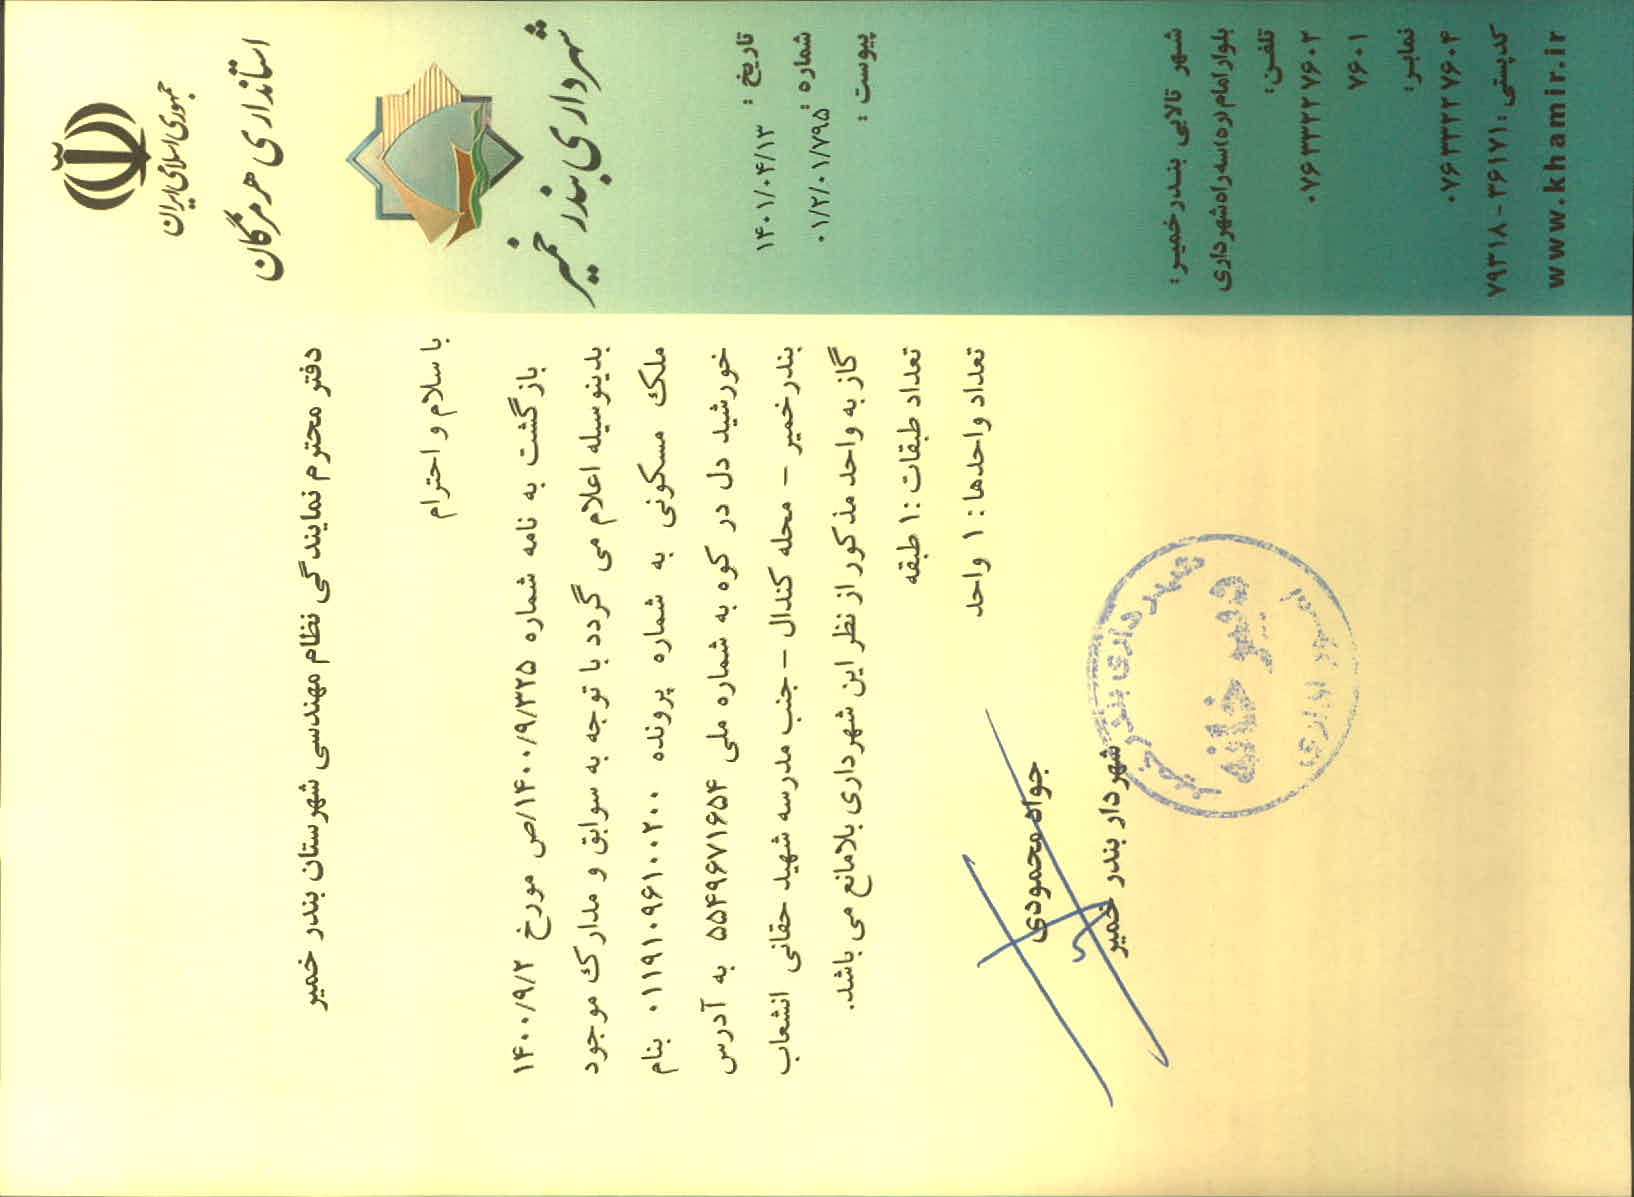 جمهوری اسلامی ایران
استانداری هرمزگان
شهرداری بندر خمیر
تاریخ : ۱۴۰۱/۰۴/۱۳
شماره : ۰۱/۲/۰۱/۷۹۵
پیوست :
دفتر محترم نمایندگی نظام مهندسی شهرستان بندر خمیر
با سلام و احترام
بازگشت به نامه شماره ۱۴۰۰/۹/۳۲۵/ص مورخ ۱۴۰۰/۹/۲
بدینوسیله اعلام می گردد با توجه به سوابق و مدارک موجود
ملک مسکونی به شماره پرونده ۰۱۱۹۱۰۹۶۱۰۰۲۰۰ بنام
خورشید دل در کوه به شماره ملی ۵۵۴۹۶۷۱۶۵۴ به آدرس
بندرخمیر - محله کندال -جنب مدرسه شهید حقانی انشعاب
گاز به واحد مذکور از نظر این شهرداری بلامانع می باشد.
تعداد طبقات :۱ طبقه
تعداد واحدها : ۱ واحد
جواد محمودی
شهردار بندر خمیر
شهرداری بندر خمیر
دبیرخانه
امور اداری
شهر تالابی بندرخمیر:
بلوار امام(ره)سه راه شهرداری
تلفن:
۰۷۶۳۳۲۲۷۶۰۲
۷۶۰۱
نمابر:
۰۷۶۳۳۲۲۷۶۰۴
کدپستی :۳۶۱۷۱-۷۹۳۱۸
www.khamir.ir